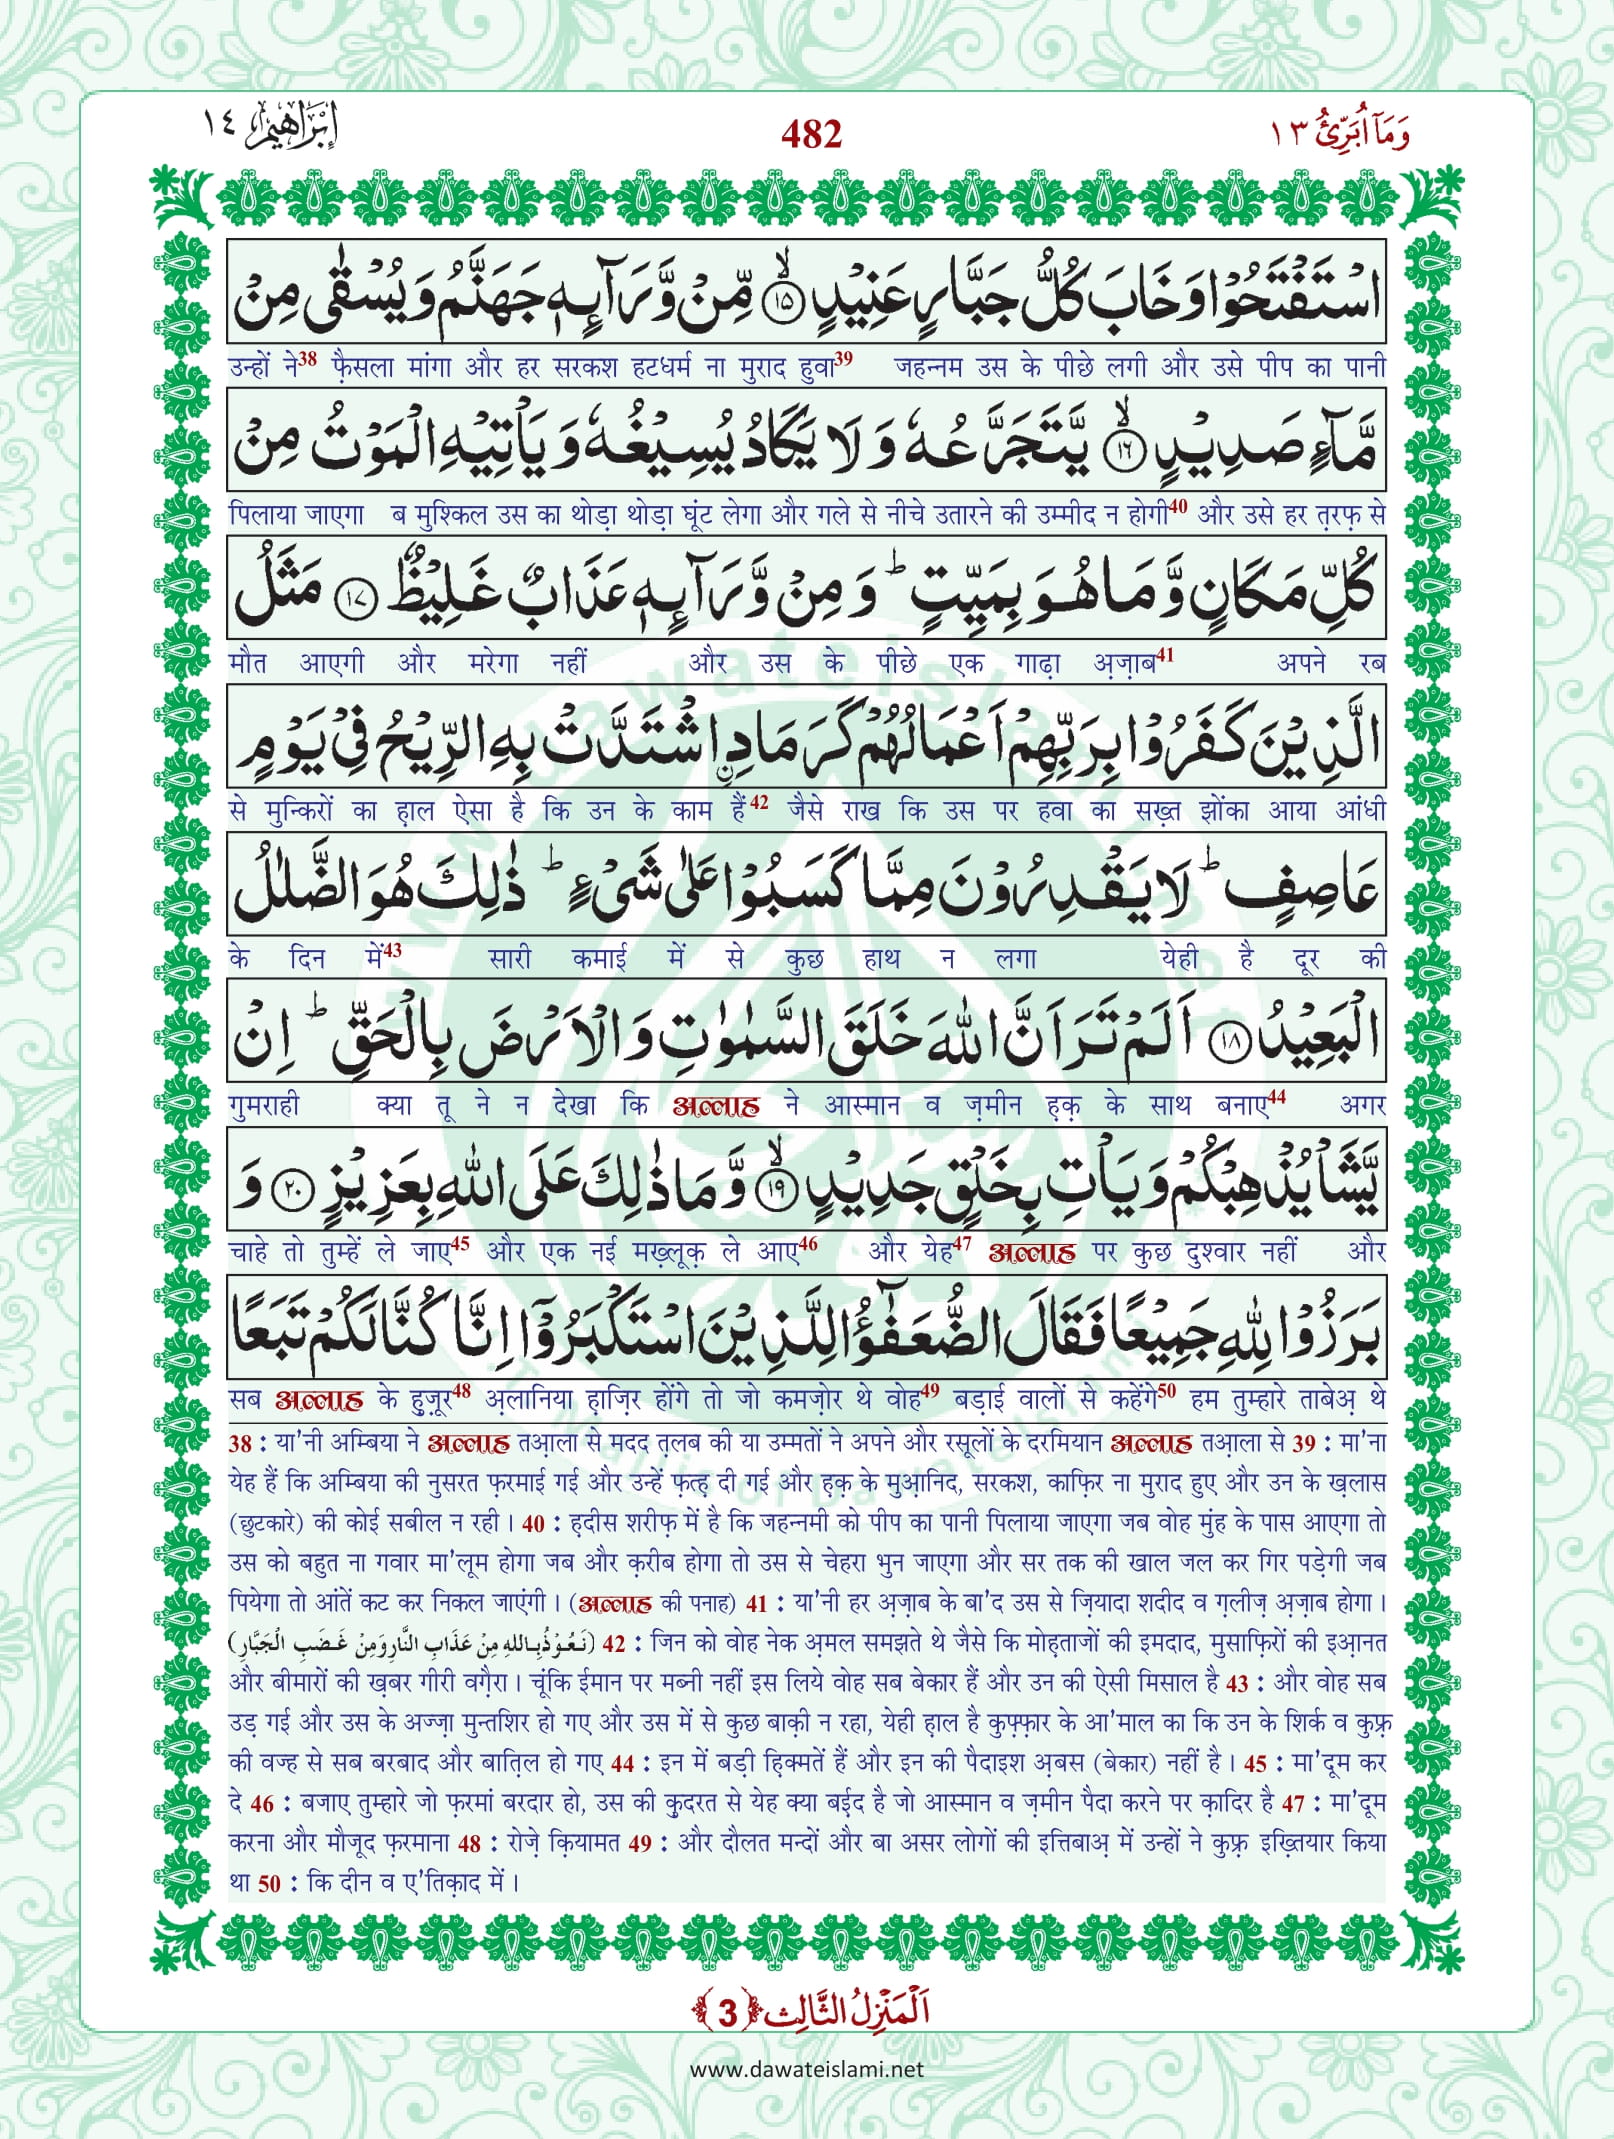 وَمَآ اُبَرِّئُ ١٣
482
اِبْرٰهِيْم ١٤
اسْتَفْتَحُوْا وَ خَابَ كُلُّ جَبَّارٍ عَنِيْدٍۙ﴿۱۵﴾ مِّنْ وَّرَآىِٕهٖ جَهَنَّمُ وَ یُسْقٰى مِنْ
उन्हों ने38 फ़ैसला मांगा और हर सरकश हटधर्म ना मुराद हुवा39 जहन्नम उस के पीछे लगी और उसे पीप का पानी
مَّآءٍ صَدِیْدٍۙ﴿۱۶﴾ یَّتَجَرَّعُهٗ وَ لَا یَكَادُ یُسِیْغُهٗ وَ یَاْتِیْهِ الْمَوْتُ مِنْ
पिलाया जाएगा ब मुश्किल उस का थोड़ा थोड़ा घूंट लेगा और गले से नीचे उतारने की उम्मीद न होगी40 और उसे हर त़रफ़ से
كُلِّ مَكَانٍ وَّ مَا هُوَ بِمَیِّتٍؕ وَ مِنْ وَّرَآىِٕهٖ عَذَابٌ غَلِیْظٌ﴿۱۷﴾ مَثَلُ
मौत आएगी और मरेगा नहीं और उस के पीछे एक गाढ़ा अ़ज़ाब41 अपने रब
الَّذِیْنَ كَفَرُوْا بِرَبِّهِمْ اَعْمَالُهُمْ كَرَمَادِ ﹰاشْتَدَّتْ بِهِ الرِّیْحُ فِیْ یَوْمٍ
से मुन्किरों का ह़ाल ऐसा है कि उन के काम हैं42 जैसे राख कि उस पर हवा का सख़्त झोंका आया आंधी
عَاصِفٍؕ لَا یَقْدِرُوْنَ مِمَّا كَسَبُوْا عَلٰى شَیْءٍؕ ذٰلِكَ هُوَ الضَّلٰلُ
के दिन में43 सारी कमाई में से कुछ हाथ न लगा येही है दूर की
الْبَعِیْدُ﴿۱۸﴾ اَلَمْ تَرَ اَنَّ اللّٰهَ خَلَقَ السَّمٰوٰتِ وَ الْاَرْضَ بِالْحَقِّؕ اِنْ
गुमराही क्या तू ने न देखा कि अल्लाह ने आस्मान व ज़मीन ह़क़ के साथ बनाए44 अगर
یَّشَاْ یُذْهِبْكُمْ وَ یَاْتِ بِخَلْقٍ جَدِیْدٍۙ﴿۱۹﴾ وَّ مَا ذٰلِكَ عَلَى اللّٰهِ بِعَزِیْزٍ﴿۲۰﴾ وَ
चाहे तो तुम्हें ले जाए45 और एक नई मख़्लूक़ ले आए46 और येह47 अल्लाह पर कुछ दुश्वार नहीं और
بَرَزُوْا لِلّٰهِ جَمِیْعًا فَقَالَ الضُّعَفٰٓؤُا لِلَّذِیْنَ اسْتَكْبَرُوْۤا اِنَّا كُنَّا لَكُمْ تَبَعًا
सब अल्लाह के हुज़ूर48 अ़लानिया ह़ाज़िर होंगे तो जो कमज़ोर थे वोह49 बड़ाई वालों से कहेंगे50 हम तुम्हारे ताबेअ़ थे
38 : या'नी अम्बिया ने अल्लाह तआ़ला से मदद त़लब की या उम्मतों ने अपने और रसूलों के दरमियान अल्लाह तआ़ला से 39 : मा'ना
येह हैं कि अम्बिया की नुसरत फ़रमाई गई और उन्हें फ़त्ह़ दी गई और ह़क़ के मुआ़निद, सरकश, काफ़िर ना मुराद हुए और उन के ख़लास
(छुटकारे) की कोई सबील न रही। 40 : ह़दीस शरीफ़ में है कि जहन्नमी को पीप का पानी पिलाया जाएगा जब वोह मुंह के पास आएगा तो
उस को बहुत ना गवार मा'लूम होगा जब और क़रीब होगा तो उस से चेहरा भुन जाएगा और सर तक की खाल जल कर गिर पड़ेगी जब
पियेगा तो आंतें कट कर निकल जाएंगी। (अल्लाह की पनाह) 41 : या'नी हर अ़ज़ाब के बा'द उस से ज़ियादा शदीद व ग़लीज़ अ़ज़ाब होगा।
(نَعُوْذُ بِاللهِ مِنْ عَذَابِ النَّارِ وَمِنْ غَضَبِ الْجَبَّارِ) 42 : जिन को वोह नेक अ़मल समझते थे जैसे कि मोह़ताजों की इमदाद, मुसाफ़िरों की इआ़नत
और बीमारों की ख़बर गीरी वग़ैरा। चूंकि ईमान पर मब्नी नहीं इस लिये वोह सब बेकार हैं और उन की ऐसी मिसाल है 43 : और वोह सब
उड़ गई और उस के अज्ज़ा मुन्तशिर हो गए और उस में से कुछ बाक़ी न रहा, येही ह़ाल है कुफ़्फ़ार के आ'माल का कि उन के शिर्क व कुफ़्र
की वज्ह से सब बरबाद और बात़िल हो गए 44 : इन में बड़ी ह़िक्मतें हैं और इन की पैदाइश अ़बस (बेकार) नहीं है। 45 : मा'दूम कर
दे 46 : बजाए तुम्हारे जो फ़रमां बरदार हो, उस की क़ुदरत से येह क्या बईद है जो आस्मान व ज़मीन पैदा करने पर क़ादिर है 47 : मा'दूम
करना और मौजूद फ़रमाना 48 : रोज़े क़ियामत 49 : और दौलत मन्दों और बा असर लोगों की इत्तिबाअ़ में उन्हों ने कुफ़्र इख़्तियार किया
था 50 : कि दीन व ए'तिक़ाद में।
اَلْمَنْزِلُ الثَّالِث ﴿3﴾
www.dawateislami.net